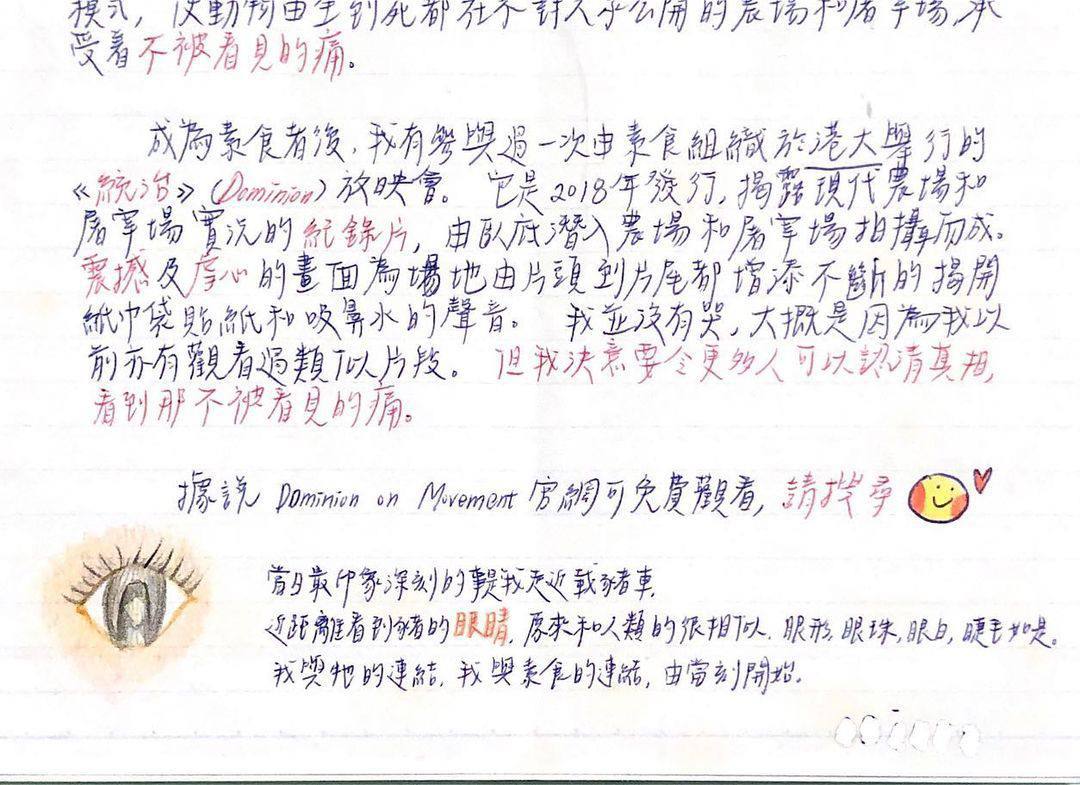 模式，使動物由生到死都在不對大眾公開的農場和屠宰場,承
受着不被看見的痛。
成為素食者後,我有參與過一次由素食組織於港大舉行的
《統治》(Dominion)放映會。它是2018年發行,揭露現代農場和
屠宰場實況的紀錄片,由臥底潛入農場和屠宰場拍攝而成。
震撼及虐心的畫面為場地由片頭到片尾都增添不斷的揭開
紙巾袋貼紙和吸鼻水的聲音。我並沒有哭,大概是因為我以
前亦有觀看過類似片段。但我決意要令更多人可以認清真相,
看到那不被看見的痛。
據說 Dominion on Movement 官網可免費觀看,請搜尋
當日最印象深刻的事是我走近載豬車,
近距離看到豬的眼睛,原來和人類的很相似,眼形,眼珠,眼白,睫毛如是。
我與牠的連結,我與素食的連結,由當刻開始。